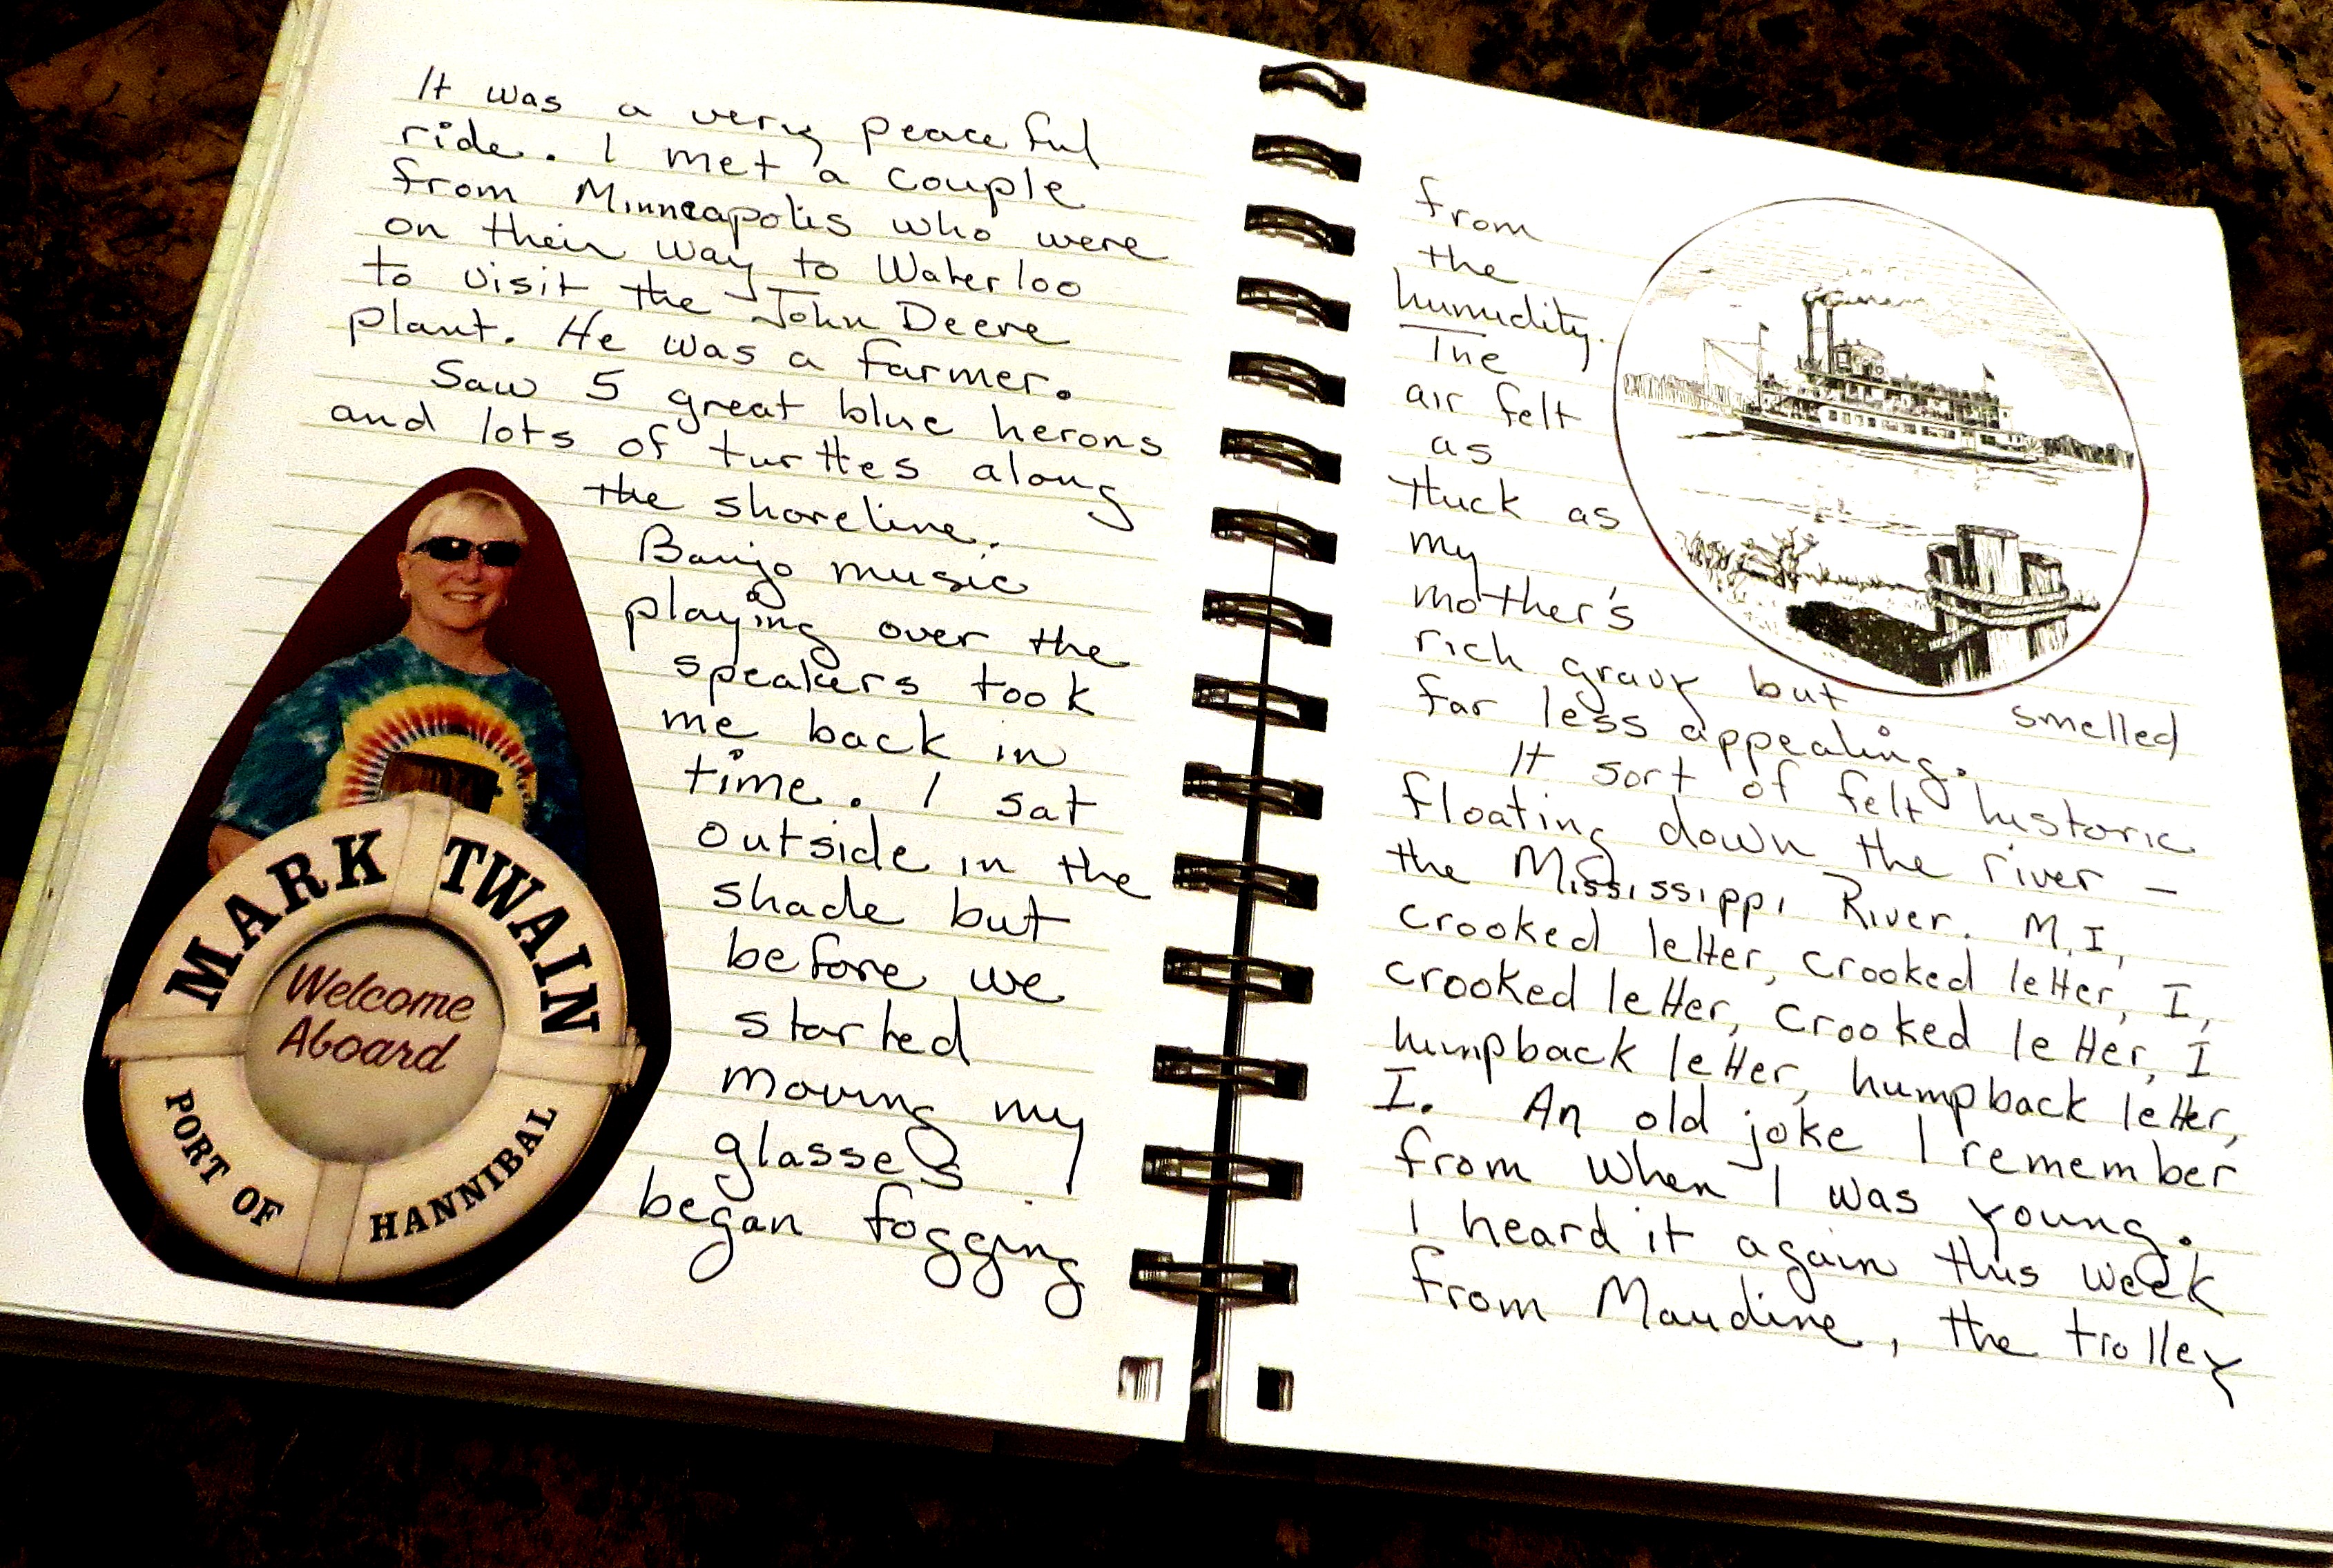 It was a very peaceful
ride. I met a couple
from Minneapolis who were
on their way to Waterloo
to visit the John Deere
plant. He was a farmer.
Saw 5 great blue herons
and lots of turtles along
the shoreline.
Banjo music
playing over the
speakers took
me back in
time. I sat
outside in the
shade but
before we
started
moving my
glasses
began fogging
MARK TWAIN
Welcome
Aboard
PORT OF HANNIBAL
from
the
humidity.
The
air felt
as
thick as
my
mother's
rich gravy but smelled
far less appealing.
It sort of felt historic
floating down the river –
the Mississippi River. M, I,
crooked letter, crooked letter, I,
crooked letter, crooked letter, I
humpback letter, humpback letter,
I. An old joke I remember
from when I was young.
I heard it again this week
from Maudine, the trolley